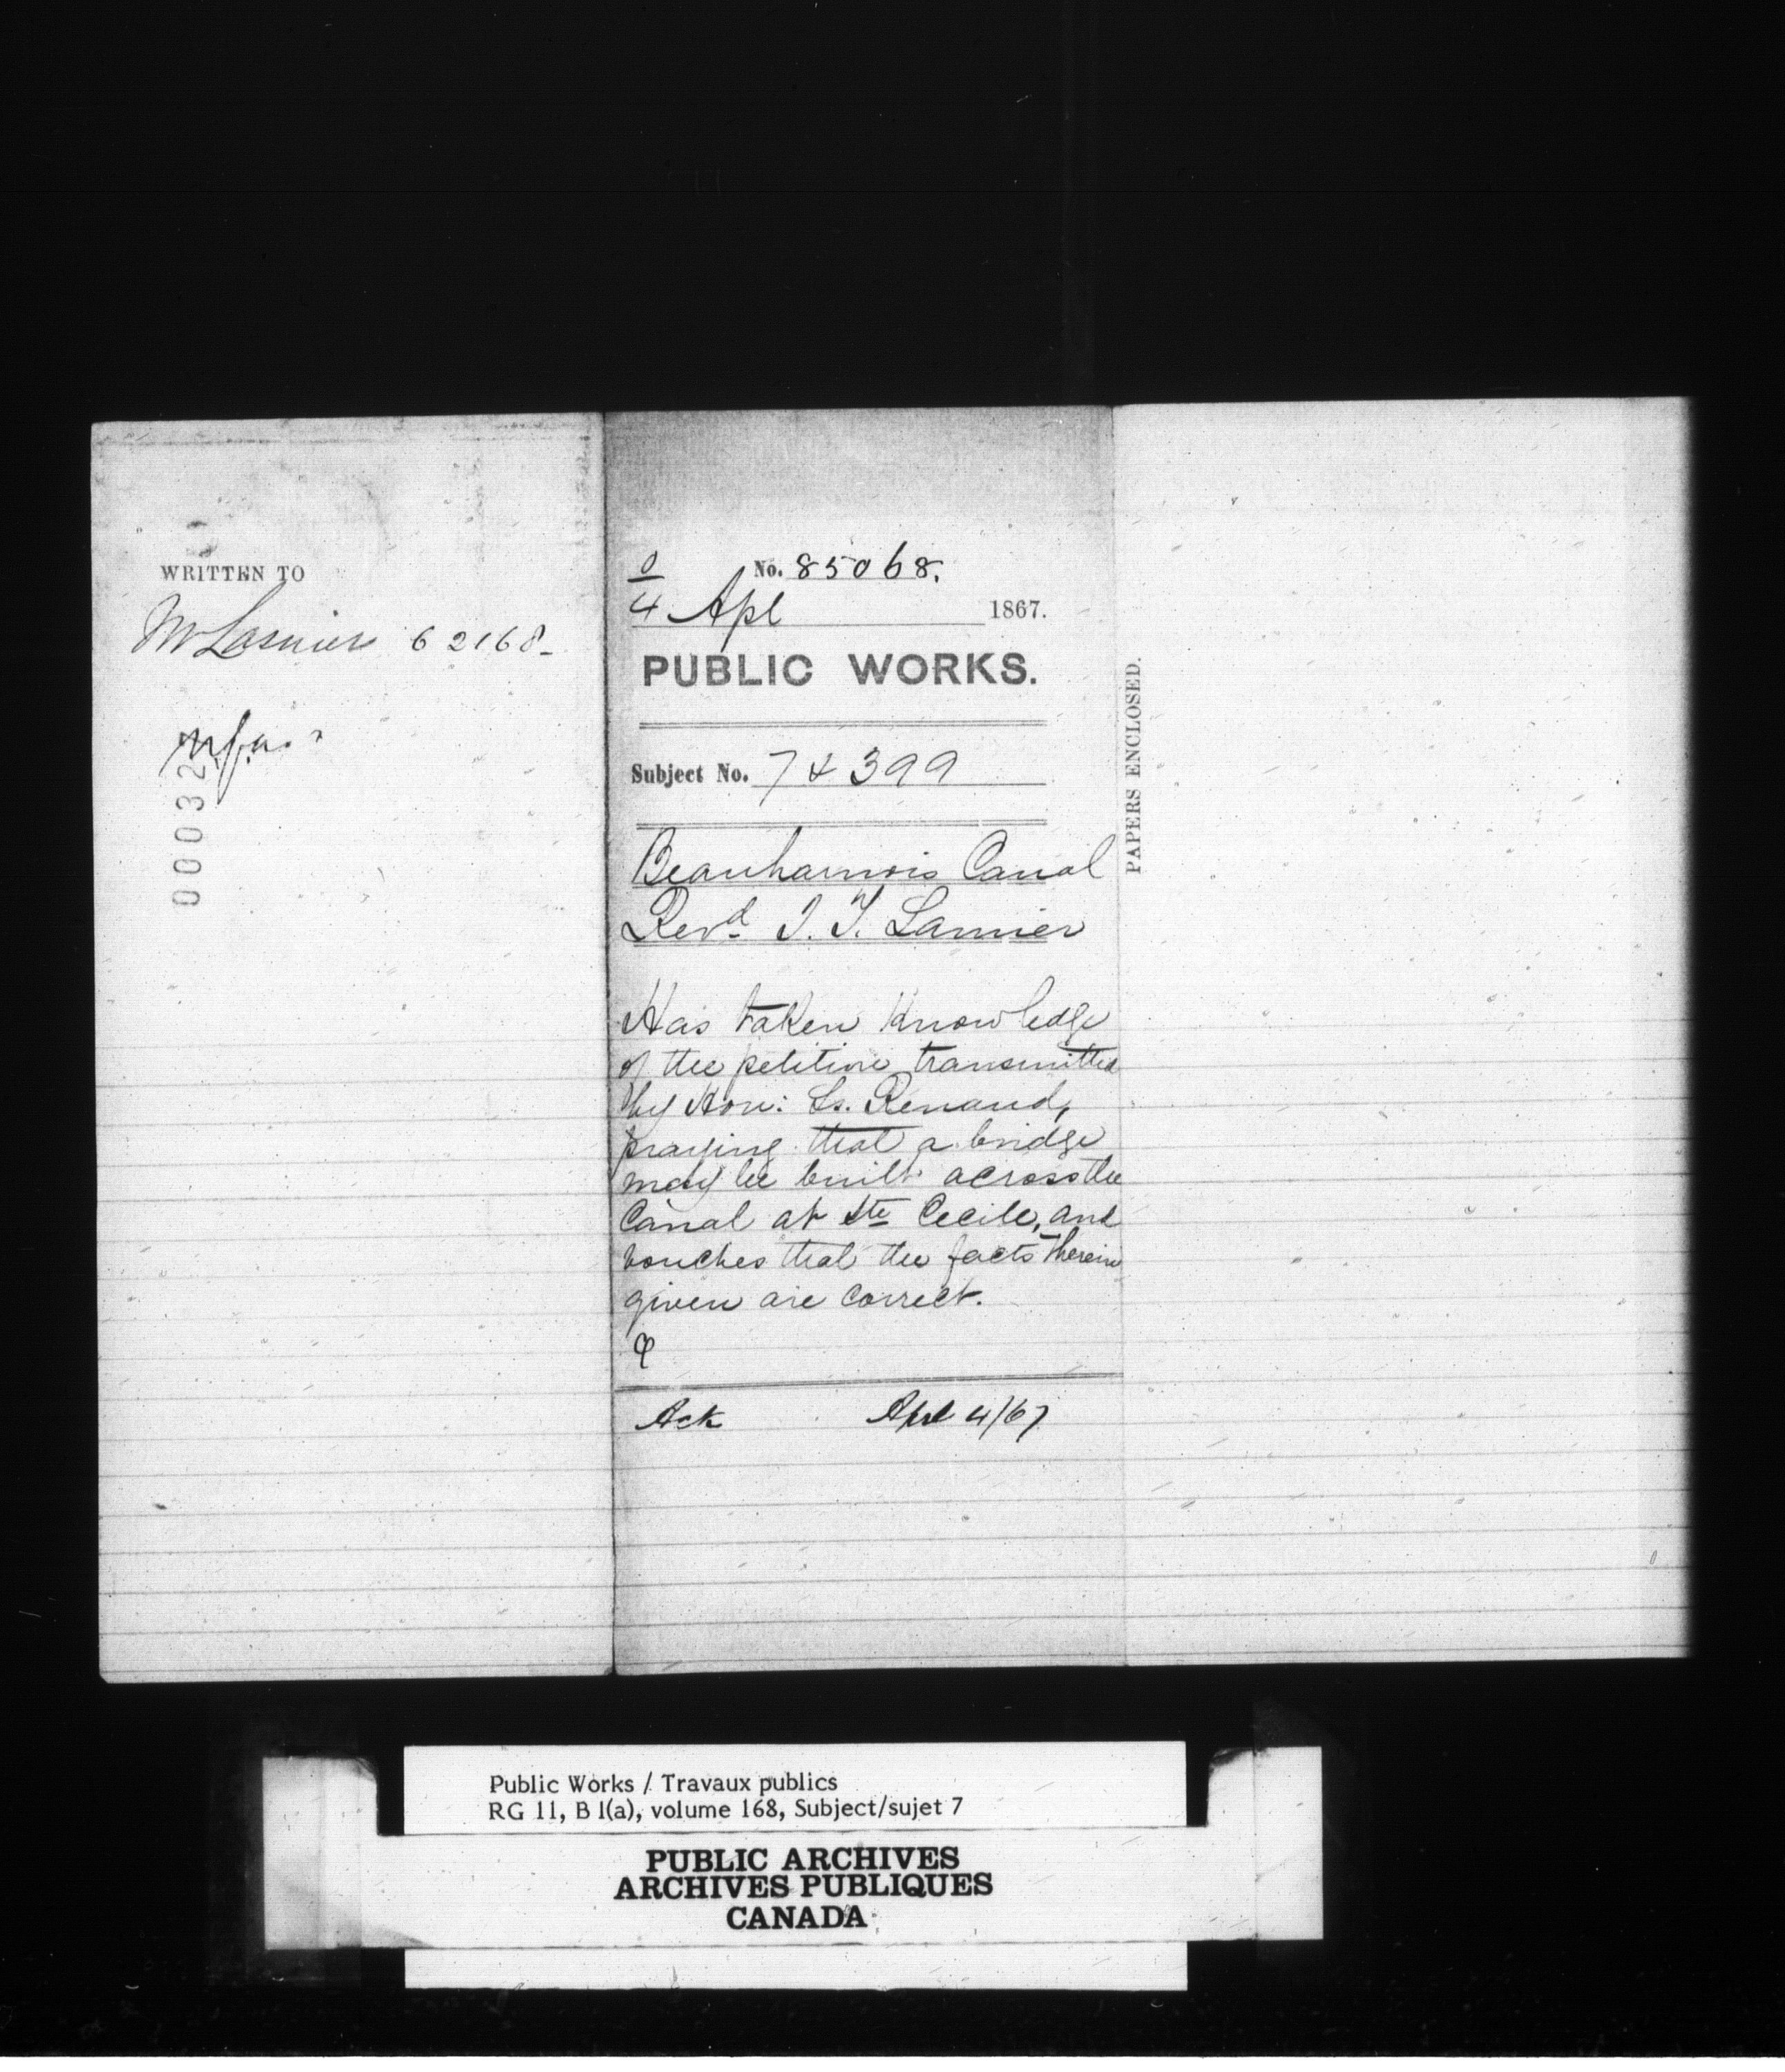 WRITTEN TO
Mr Lasnier 62168-
00032
0
No. 85068.
4 Apl 1867.
PUBLIC WORKS.
Subject No. 7 & 399
Beauharnois Canal
Revd. I. T. Lasnier
Has taken knowledge
of the petition transmitted
by Hon: Ls. Renaud,
praying that a bridge
may be built across the
Canal at Ste Cecile, and
vouches that the facts therein
given are correct.
Ack Apl 4/67
PAPERS ENCLOSED.
Public Works / Travaux publics
RG 11, B 1(a), volume 168, Subject/sujet 7
PUBLIC ARCHIVES
ARCHIVES PUBLIQUES
CANADA